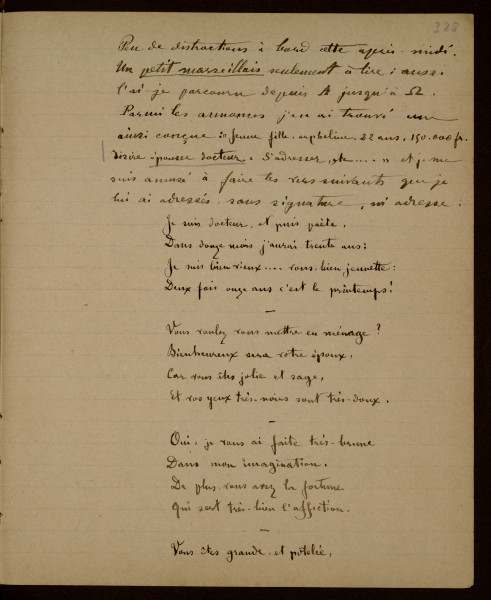 328
Peu de distractions à bord cette après-midi.
Un petit marseillais seulement à lire ; aussi
l'ai-je parcouru depuis A jusqu'à Ω.
Parmi les annonces j'en ai trouvé une
ainsi conçue : « Jeune fille, orpheline, 22 ans, 150.000 fr.
désire épouser docteur. S'adresser, etc.... » et je me
suis amusé à faire les vers suivants que je
lui ai adressés sans signature, ni adresse :
Je suis docteur, et puis poète,
Dans douze mois j'aurai trente ans ;
Je suis bien vieux.... vous, bien jeunette :
Deux fois onze ans c'est le printemps !
Vous voulez vous mettre en ménage ?
Bienheureux sera votre époux,
Car vous êtes jolie et sage,
Et vos yeux très-noirs sont très-doux.
Oui, je vous ai faite très-brune
Dans mon imagination.
De plus vous avez la fortune
Qui sert très-bien l'affection.
Vous êtes grande et potelée,